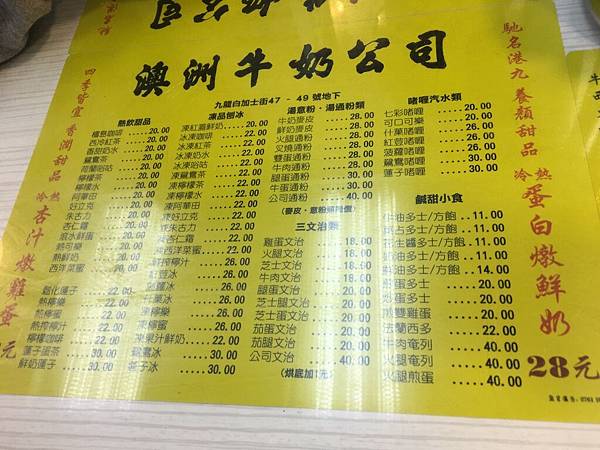 澳洲牛奶公司
九龍白加士街47 - 49號地下
馳名港九 養顏甜品
冷熱 蛋白燉鮮奶 28元
四季皆宜 香潤甜品
冷熱 杏汁燉雞蛋
熱飲甜品
檀島咖啡 20.00
西冷紅茶 20.00
香甜奶水 20.00
鴛鴦茶 20.00
荷蘭唂咕 20.00
檸檬茶 20.00
檸檬水 20.00
阿華田 20.00
好立克 20.00
朱古力 20.00
杏仁霜 20.00
滾水鮮蛋 20.00
熱可樂 20.00
熱鮮奶 20.00
西洋菜蜜 20.00
燉蓮子 22.00
熱檸樂 22.00
熱檸蜜 22.00
熱檸檸汁 22.00
檸檬咖啡 22.00
蓮子蛋茶 30.00
鮮奶蓮子 30.00
凍品刨冰
凍紅荳鮮奶 20.00
冰凍咖啡 22.00
冰凍紅茶 22.00
冰凍奶水 22.00
冰凍唂咕 22.00
凍鴛鴦 22.00
凍檸檬茶 22.00
凍檸檬水 22.00
凍華田 22.00
凍好立克 22.00
凍朱古力 22.00
凍杏仁霜 22.00
凍西洋菜蜜 22.00
檸汁 26.00
紅荳冰 26.00
菠蘿冰 26.00
什菓冰 26.00
凍檸樂 26.00
凍檸蜜 26.00
凍菓汁鮮奶 22.00
鴛鴦冰 30.00
蓮子冰 30.00
湯意粉、湯通粉類
牛奶麥皮 28.00
鮮奶麥皮 28.00
火腿通粉 28.00
叉燒通粉 28.00
雙蛋通粉 28.00
牛肉通粉 28.00
腿蛋通粉 30.00
牛蛋通粉 30.00
公司通粉 40.00
(麥皮、意粉類同價)
三文治類
雞蛋文治 18.00
火腿文治 18.00
芝士文治 18.00
牛肉文治 18.00
腿蛋文治 20.00
芝士蛋文治 20.00
芝士腿文治 20.00
茄蛋文治 20.00
茄腿文治 20.00
公司文治 30.00
(烘底加1元)
啫喱汽水類
七彩啫喱 20.00
可口可樂 20.00
什菓啫喱 30.00
紅荳啫喱 30.00
菠蘿啫喱 30.00
鴛鴦啫喱 30.00
蓮子啫喱 30.00
鹹甜小食
牛油多士/方飽 11.00
占多士/方飽 11.00
花生醬多士/方飽 11.00
奶油多士/方飽 11.00
油多士/方飽 14.00
煎蛋多士
炒蛋多士 20.00
雙雞蛋 20.00
法蘭西多 22.00
牛肉奄列 40.00
火腿奄列 40.00
火腿煎蛋 40.00